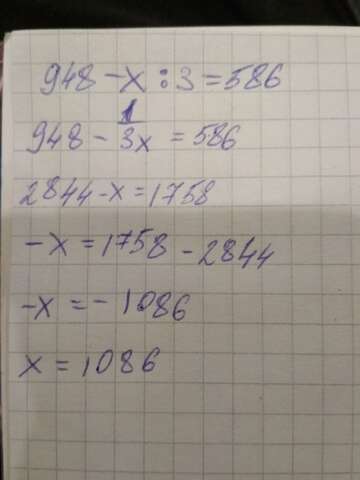 948 - x : 3 = 586
948 - 1/3 x = 586
2844 - x = 1758
-x = 1758 - 2844
-x = - 1086
x = 1086